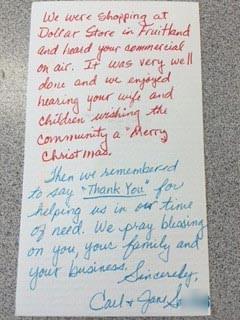 We were shopping at
Dollar Store in Fruitland
and heard your commercial
on air. It was very well
done and we enjoyed
hearing your wife and
children wishing the
community a "Merry
Christmas.
Then we remembered
to say "Thank You" for
helping us in our time
of need. We pray blessing
on you, your family and
your business.
Sincerely,
Carl & Jane